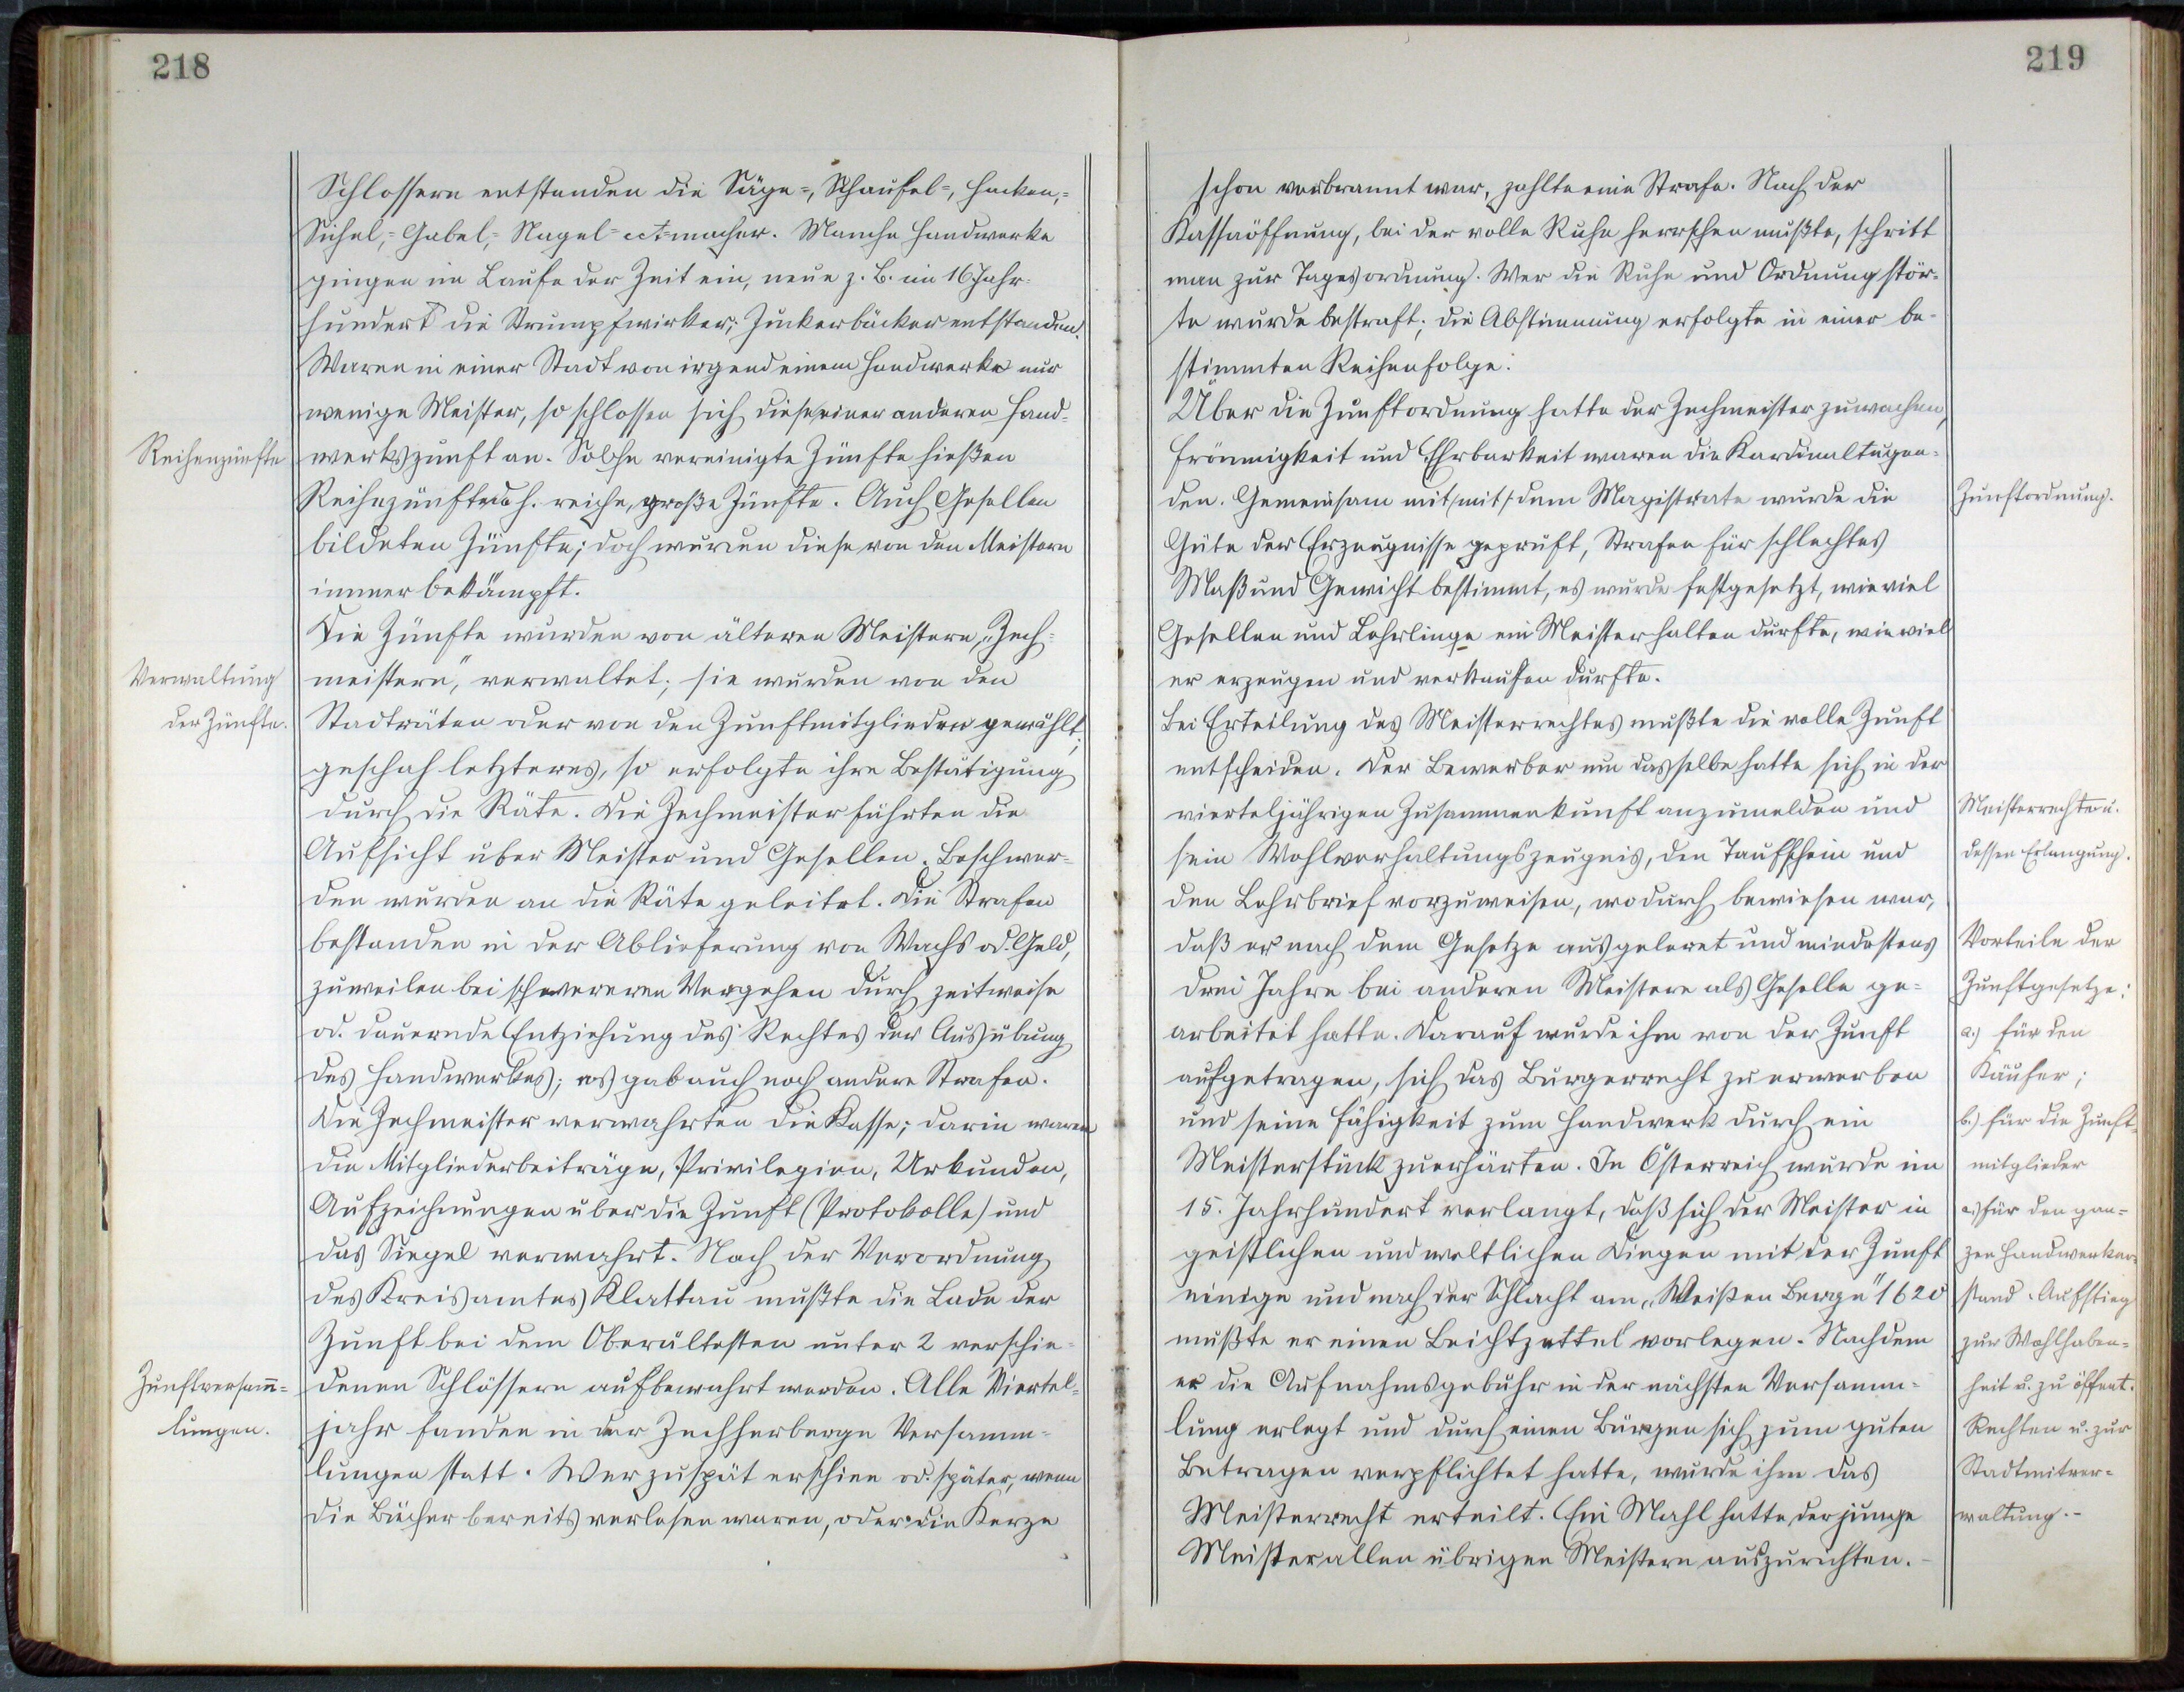 218
Schlossern entstanden die Säge=, Schaufel=, Hacken,=
Sichel,= Gabel,= Nagel= ect=macher. Manche Handwerke
gingen im Laufe der Zeit ein, neue z. B. im 16 Jahr-
hundert die Strumpfwirker, Zuckerbäcker entstanden.
Waren in einer Stadt von irgend einem Handwerke nur
wenige Meister, so schlossen sich diese einer anderen Hand-
Reihenzünfte
werkszunft an. Solche vereinigte Zünfte hießen
Reihezünfte d. h. reiche, große Zünfte. Auch Gesellen
bildeten Zünfte; doch wurden diese von den Meistern
immer bekämpft.
Die Zünfte wurden von älteren Meistern, „Zech-
Verwaltung
meistern“, verwaltet; sie wurden von den
der Zünfte.
Stadträten oder von den Zunftmitgliedern gewählt;
geschah letzteres, so erfolgte ihre Bestätigung
durch die Räte. Die Zechmeister führten die
Aufsicht über Meister und Gesellen. Beschwer-
den wurden an die Räte geleitet. Die Strafen
bestanden in der Ablieferung von Wachs od. Geld,
zuweilen bei schwereren Vergehen durch zeitweise
od. dauernde Entziehung des Rechtes der Ausübung
des Handwerkes; es gab auch noch andere Strafen.
Die Zechmeister verwahrten die Kasse; darin waren
die Mitgliederbeiträge, Privilegien, Urkunden,
Aufzeichnungen über die Zunft (Protokolle) und
das Siegel verwahrt. Nach der Verordnung
des Kreisamtes Klattau mußte die Lade der
Zunft bei dem Oberältesten unter 2 verschie-
Zunftversam̄=
denen Schlössern aufbewahrt werden. Alle Viertel-
lungen.
jahr fanden in der Zechherberge Versamm-
lungen statt. Wer zu spät erschien od. später, wenn
die Bücher bereits verlesen waren, oder die Kerze
219
schon verbrannt war, zahlte eine Strafe. Nach der
Kassaöffnung, bei der volle Ruhe herrschen mußte, schritt
man zur Tagesordnung. Wer die Ruhe und Ordnung stör-
te wurde bestraft; die Abstimmung erfolgte in einer be-
stimmten Reihenfolge.
Über die Zunftordnung hatte der Zechmeister zu wachen,
Frömmigkeit und Ehrbarkeit waren die Kardinaltugen-
den. Gemeinsam mit/mit/ dem Magistrate wurde die
Zunftordnung.
Güte der Erzeugnisse geprüft, Strafen für schlechtes
Maß und Gewicht bestimmt, es wurde festgesetzt, wieviel
Gesellen und Lehrlinge ein Meister halten durfte, wieviel
er erzeugen und verkaufen durfte.
Bei Erteilung des Meisterrechtes mußte die volle Zunft
entscheiden. Der Bewerber um dasselbe hatte sich in der
vierteljährigen Zusammenkunft anzumelden und
Meisterrechte u.
sein Wohlverhaltungszeugnis, den Taufschein und
dessen Erlangung.
den Lehrbrief vorzuweisen, wodurch bewiesen war,
daß er nach dem Gesetze ausgelernt und mindestens
Vorteile der
drei Jahre bei anderen Meistern als Geselle ge-
Zunftgesetze:
arbeitet hatte. Darauf wurde ihm von der Zunft
a.) für den
aufgetragen, sich das Bürgerrecht zu erwerben
Käufer;
und seine Fähigkeit zum Handwerk durch ein
b.) für die Zunft-
Meisterstück zu erhärten. In Österreich wurde im
mitglieder
15. Jahrhundert verlangt, daß sich der Meister in
c.) für den gan-
geistlichen und weltlichen Dingen mit der Zunft
zen Handwerker-
einige und nach der Schlacht am „Weißen Berge“ 1620
stand. Aufstieg
mußte er einen Beichtzettel vorlegen. Nachdem
zur Wohlhaben-
er die Aufnahmsgebühr in der nächsten Versamm-
heit u. zu öffent.
lung erlegt und durch einen Bürgen sich zum guten
Rechten u. zur
Betragen verpflichtet hatte, wurde ihm das
Stadtmitver-
Meisterrecht erteilt. Ein Mahl hatte der junge
waltung.-
Meister allen übrigen Meistern auszurichten.-